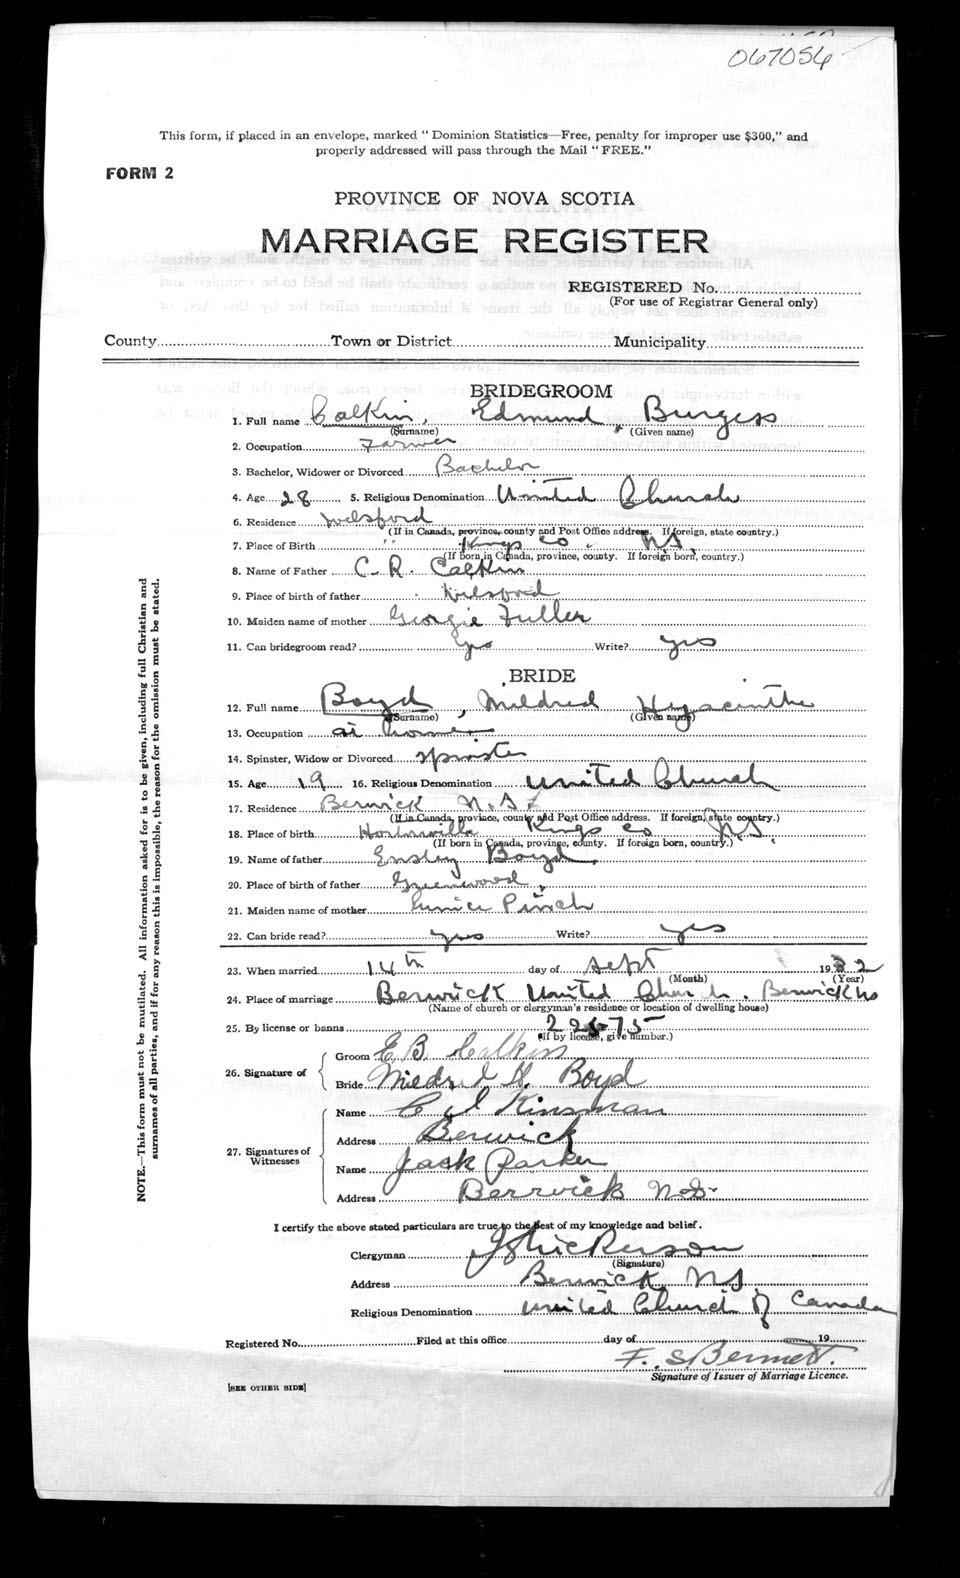 067056
This form, if placed in an envelope, marked " Dominion Statistics—Free, penalty for improper use $300," and
properly addressed will pass through the Mail " FREE."
FORM 2
PROVINCE OF NOVA SCOTIA
MARRIAGE REGISTER
REGISTERED No.
(For use of Registrar General only)
County Town or District Municipality
BRIDEGROOM
1. Full name Calkin, Edmund Burgess
(Surname) (Given name)
2. Occupation Farmer
3. Bachelor, Widower or Divorced Bachelor
4. Age 28 5. Religious Denomination United Church
6. Residence Welsford
(If in Canada, province, county and Post Office address. If foreign, state country.)
7. Place of Birth " Kings Co. NS.
(If born in Canada, province, county. If foreign born, country.)
8. Name of Father C. R. Calkin
9. Place of birth of father Welsford
10. Maiden name of mother Georgie Fuller
11. Can bridegroom read? yes Write? yes
BRIDE
12. Full name Boyd, Mildred Hyacinthe
(Surname) (Given name)
13. Occupation at home
14. Spinster, Widow or Divorced spinster
15. Age 19 16. Religious Denomination United Church
17. Residence Berwick N.S.
(If in Canada, province, county and Post Office address. If foreign, state country.)
18. Place of birth Kings Co NS.
(If born in Canada, province, county. If foreign born, country.)
19. Name of father Ensley Boyd
20. Place of birth of father Greenwood
21. Maiden name of mother Eunice Pinch
22. Can bride read? yes Write? yes
23. When married 14th day of Sept 1932
(Month) (Year)
24. Place of marriage Berwick United Church. Berwick NS
(Name of church or clergyman's residence or location of dwelling house)
25. By license or banns
(If by license, give number.)
26. Signature of
Groom E B Calkin
Bride Mildred H. Boyd
27. Signatures of Witnesses
Name Kinsman
Address Berwick
Name Jack Parker
Address Berwick N.S.
I certify the above stated particulars are true to the best of my knowledge and belief.
Clergyman
(Signature)
Address Berwick, NS.
Religious Denomination United Church of Canada
Registered No. Filed at this office day of 19
F. S Bennett.
Signature of Issuer of Marriage Licence.
[SEE OTHER SIDE]
NOTE.—This form must not be mutilated. All information asked for is to be given, including full Christian and
surnames of all parties, and if for any reason this is impossible, the reason for the omission must be stated.